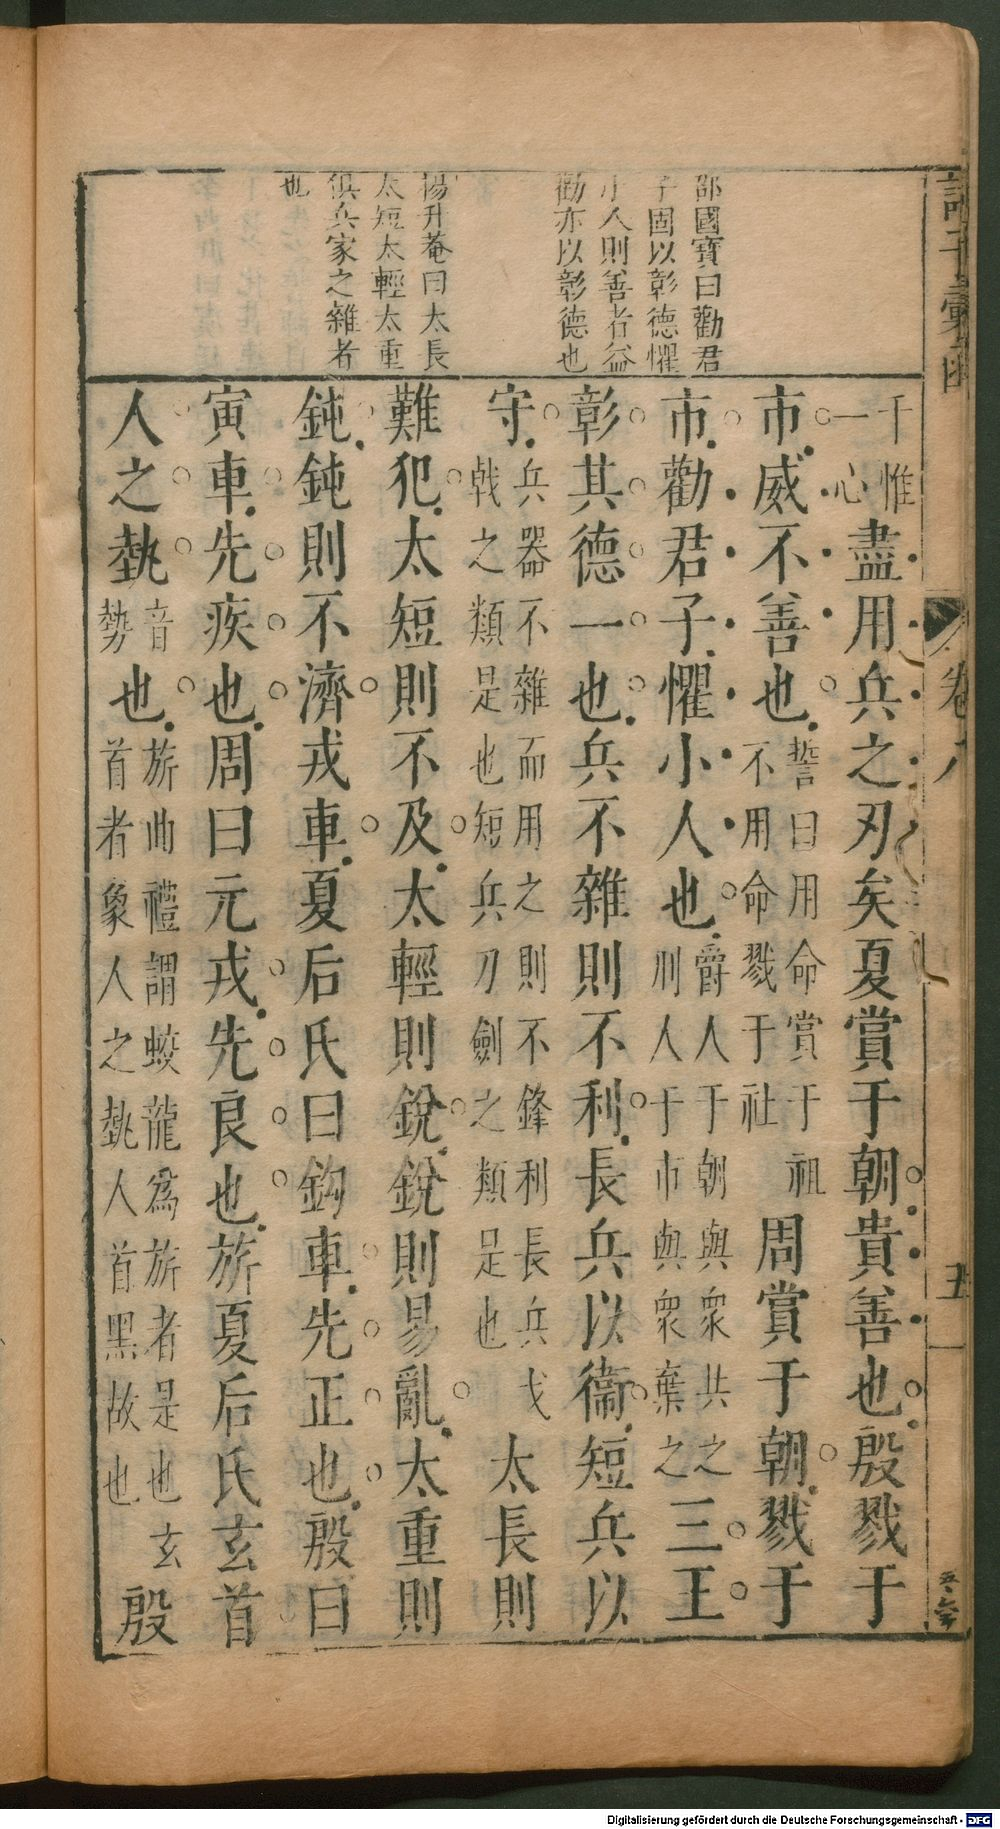 諸子彙函
卷八
五
邵國寶曰勸君
子固以彰德懼
小人則善者益
勸亦以彰德也
楊升菴曰太長
太短太輕太重
俱兵家之雜者
也
千惟
一心
盡用兵之刃矣夏賞于朝貴善也殷戮于
市威不善也
誓曰用命賞于祖
不用命戮于社
周賞于朝戮于
市勸君子懼小人也
爵人于朝與衆共之
刑人于市與衆棄之
三王
彰其德一也兵不雜則不利長兵以衞短兵以
守
兵器不雜而用之則不鋒利長兵戈
戟之類是也短兵刀劍之類是也
太長則
難犯太短則不及太輕則銳銳則易亂太重則
鈍鈍則不濟戎車夏后氏曰鈎車先正也殷曰
寅車先疾也周曰元戎先良也旂夏后氏玄首
人之埶
音
勢
也
旂曲禮謂蛟龍爲旂者是也玄
首者象人之埶人首黑故也
殷
Digitalisierung gefördert durch die Deutsche Forschungsgemeinschaft - DFG